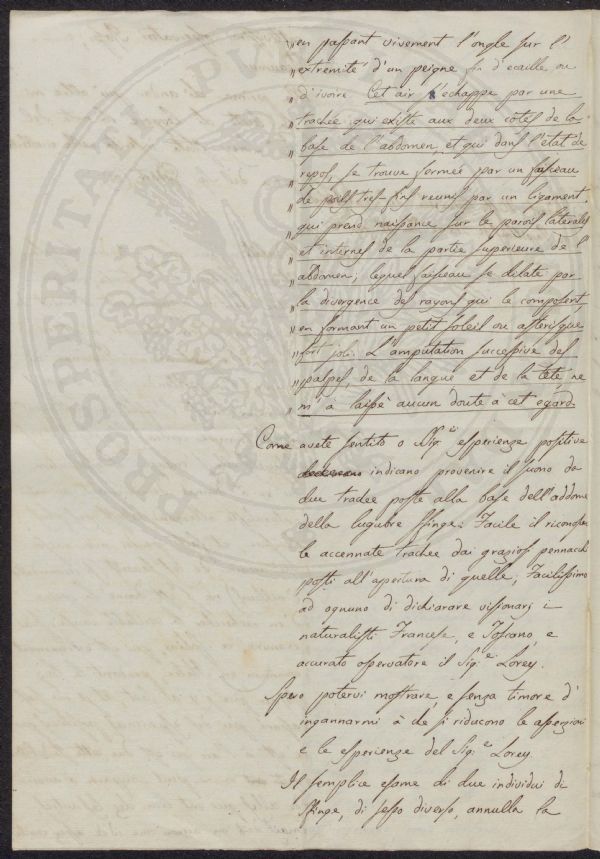 „en passant vivement l'ongle sur l'
„extremité d'un peigne fin d'ecaille ou
„d'ivoire Cet air s'echappe par une
„trachée qui existe aux deux cotés de la
„base de l'abdomen, et qui dans l'état de
„repos, se trouve fermée par un faisseau
„de poils tres-fins reunis par un ligament,
„qui prend naissance sur le parois laterales
„et internes de la partie superieure de l'
„abdomen; lequel faisseau se dilate par
„la divergence des rayons qui le composent,
„en formant un petit soleil ou asterisque
„fort joli. L'amputation successive des
„palpes, de la langue et de la tète, ne
„m'à laissè aucun doute a cet egard.
Come avete sentito o Sig.ri esperienze positive
indicano provenire il suono da
due trachee poste alla base dell'addome
della lugubre Sfinge: Facile il riconoscere
le accennate trachee dai graziosi pennacchi
posti all'apertura di quelle; Facilissimo
ad ognuno di dichiarare visionarj i
naturalisti Francese, e Toscano, e
accurato osservatore il Sig.e Lorey.
Spero potervi mostrare, e senza timore d'
ingannarmi à che si riducono le asserzioni
e le esperienze del Sig.e Lorey.
Il semplice esame di due individui di
Sfinge, di sesso diverso, annulla la
PROSPERITATI PUBLICAE